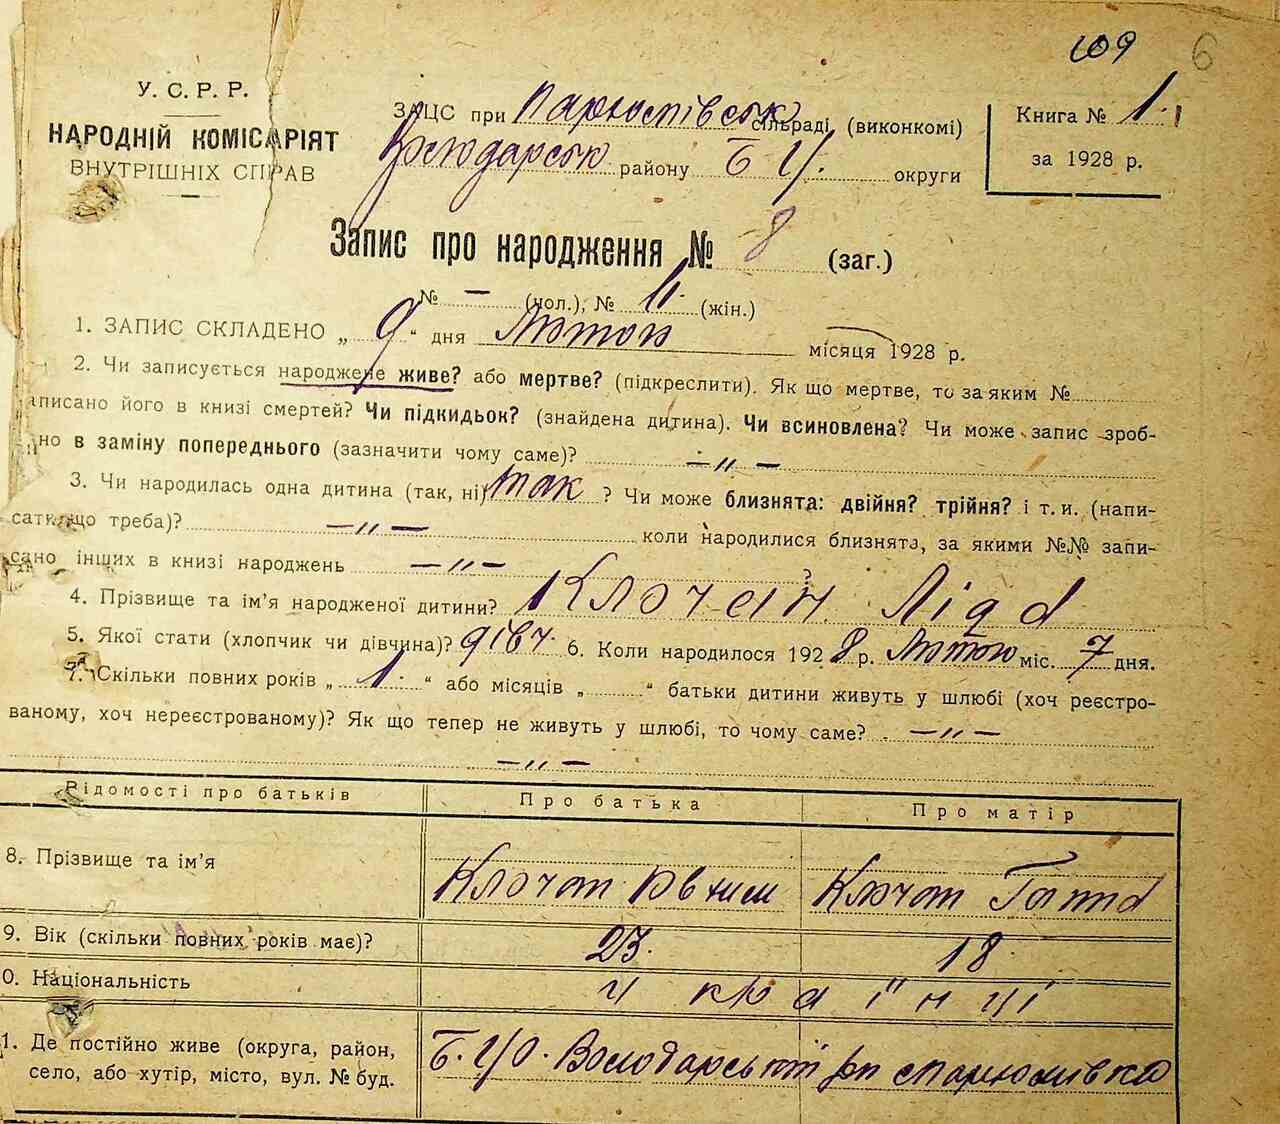 109 6
У. С. Р. Р.
НАРОДНІЙ КОМІСАРІЯТ
ВНУТРІШНІХ СПРАВ
ЗАЦС при сільраді (виконкомі)
Володарськ району Б Ц. округи
Книга № 1.
за 1928 р.
Запис про народження № 8 (заг.)
№ — (чол.), № (жін.)
1. ЗАПИС СКЛАДЕНО „ 9 “ дня Лютого місяця 1928 р.
2. Чи записується народжене живе? або мертве? (підкреслити). Як що мертве, то за яким №
записано його в книзі смертей? Чи підкидьок? (знайдена дитина). Чи всиновлена? Чи може запис зроб-
но в заміну попереднього (зазначити чому саме)? —„—
3. Чи народилась одна дитина (так, ні) так ? Чи може близнята: двійня? трійня? і т. и. (напи-
сати що треба)? —„— коли народилися близнята, за якими №№ запи-
сано інших в книзі народжень —„— ?
4. Прізвище та ім’я народженої дитини? Клочан Ліда
5. Якої стати (хлопчик чи дівчина)? дівч. 6. Коли народилося 1928 р. Лютого міс. 7 дня.
7. Скільки повних років „ 1. “ або місяців „ “ батьки дитини живуть у шлюбі (хоч реєстро-
ваному, хоч нереєстрованому)? Як що тепер не живуть у шлюбі, то чому саме? —„—
—„—
Відомості про батьків Про батька Про матір
8. Прізвище та ім’я
Клочан Клочан
9. Вік (скільки повних років має)? 23. 18
0. Національність Українці
1. Де постійно живе (округа, район,
село, або хутір, місто, вул. № буд.
Б. Ц О. Володарський рн